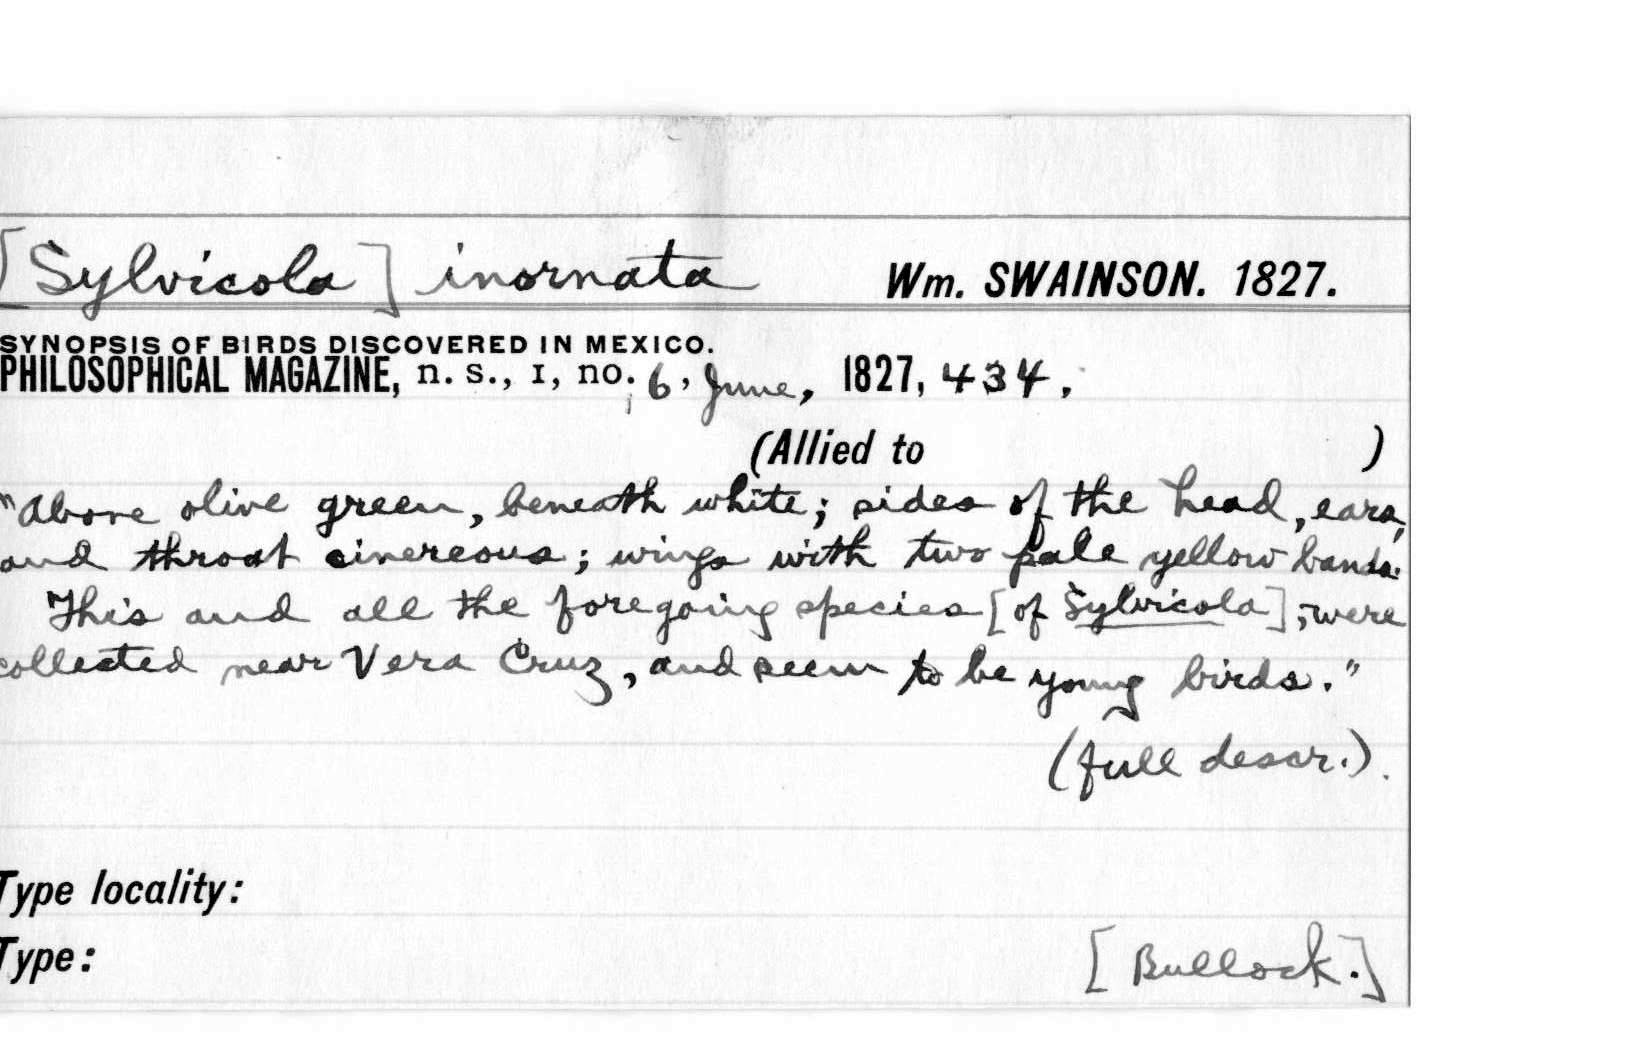 [Sylvicola] inornata Wm. SWAINSON. 1827.
SYNOPSIS OF BIRDS DISCOVERED IN MEXICO.
PHILOSOPHICAL MAGAZINE, n. s., 1, no. 6, June, 1827, 434.
(Allied to )
"Above olive green, beneath white; sides of the head, ears,
and throat cinereous; wings with two pale yellow bands.
This and all the foregoing species [of Sylvicola]; were
collected near Vera Cruz, and seem to be young birds."
(full descr.).
Type locality:
Type: [Bullock.]